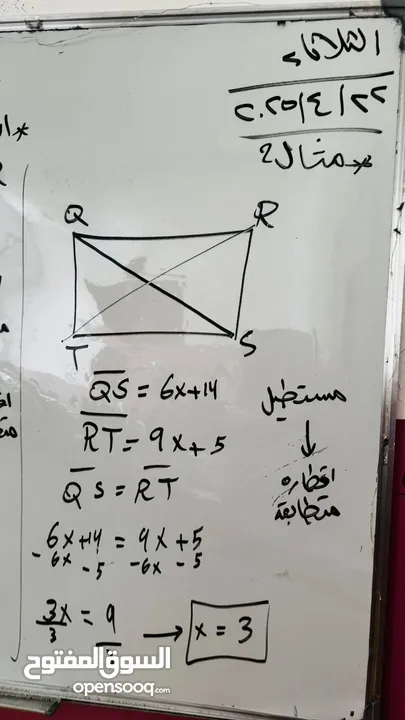 الثلاثاء
٢٢/٤/٢٠٢٥
* مثال 2
Q R
T S
QS = 6x+14
RT = 9x+5
QS = RT
مستطيل
↓
اقطاره
متطابقة
6x+14 = 9x+5
-6x -5 -6x -5
3x/3 = 9/3 → x = 3
السوق المفتوح
opensooq.com